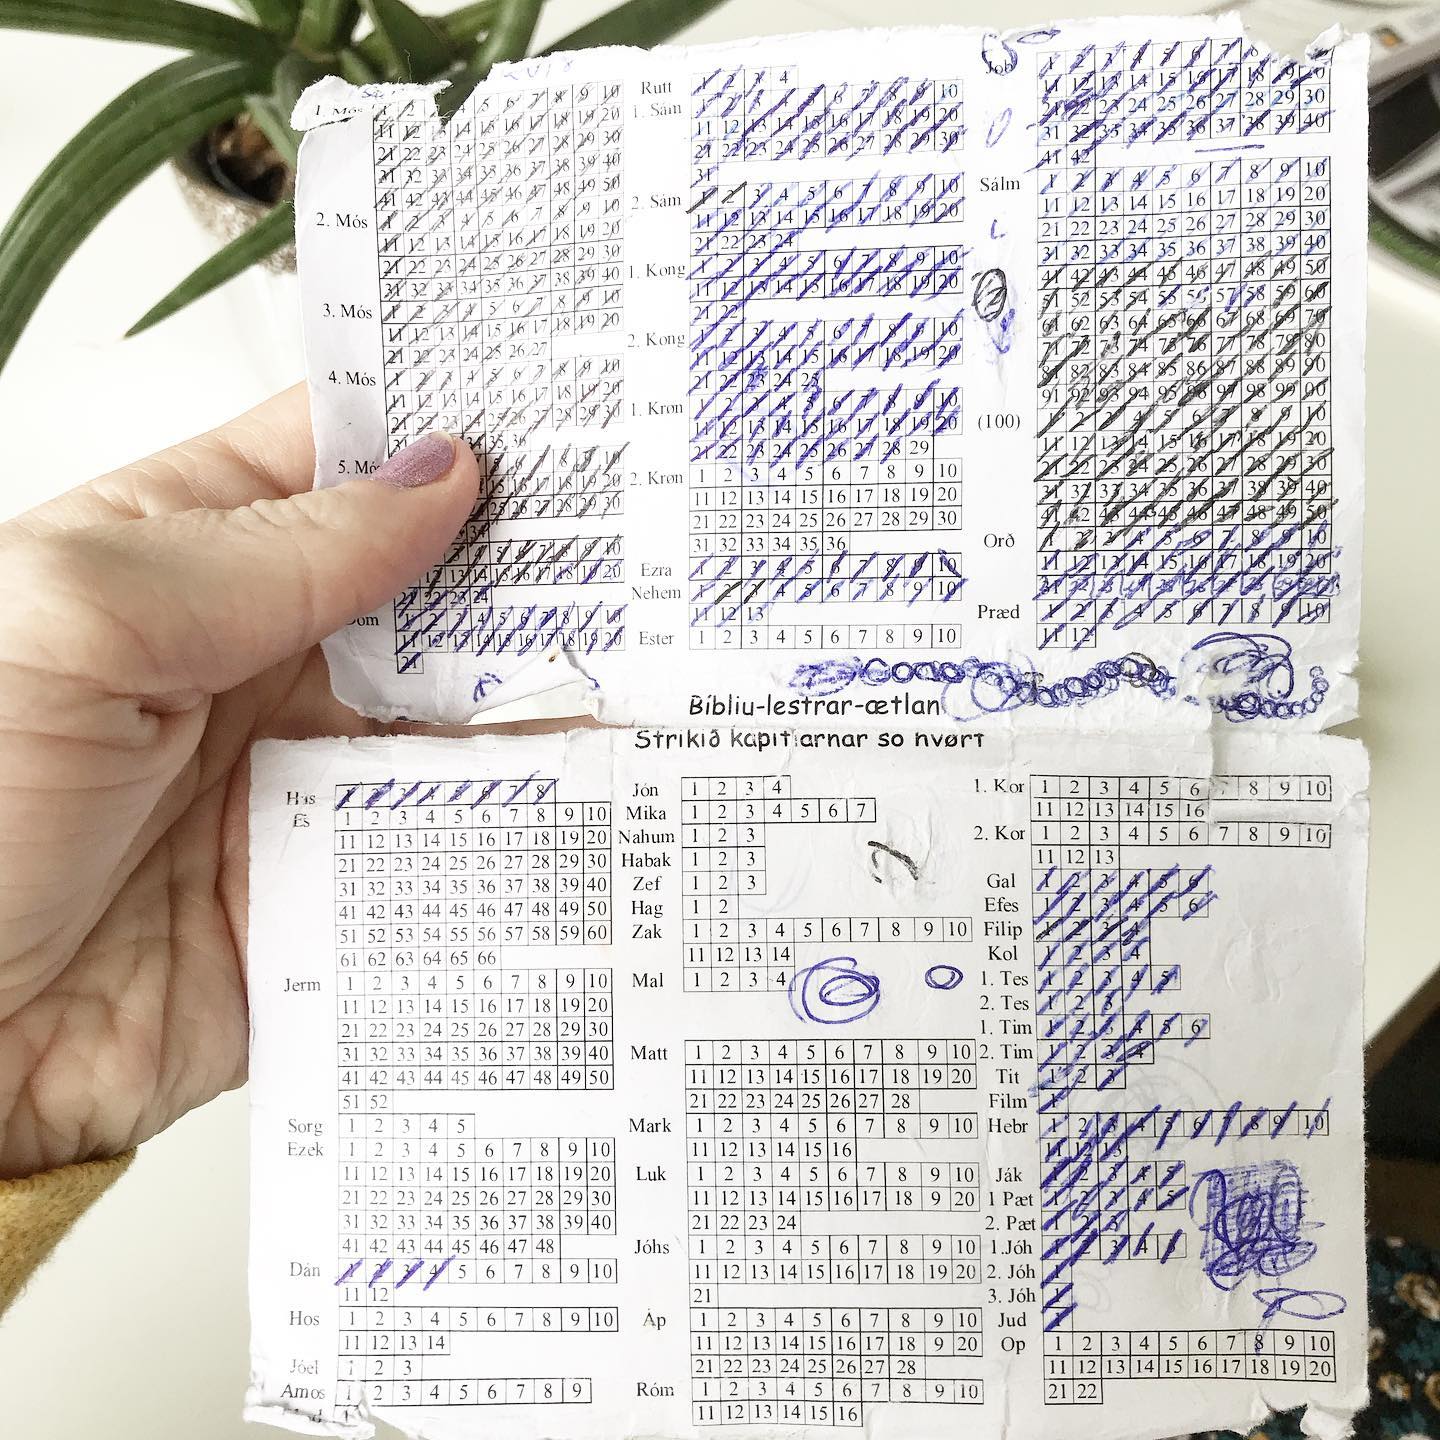 2018
1. Mós 1 2 3 4 5 6 7 8 9 10
11 12 13 14 15 16 17 18 19 20
21 22 23 24 25 26 27 28 29 30
31 32 33 34 35 36 37 38 39 40
41 42 43 44 45 46 47 48 49 50
2. Mós 1 2 3 4 5 6 7 8 9 10
11 12 13 14 15 16 17 18 19 20
21 22 23 24 25 26 27 28 29 30
31 32 33 34 35 36 37 38 39 40
3. Mós 1 2 3 4 5 6 7 8 9 10
11 12 13 14 15 16 17 18 19 20
21 22 23 24 25 26 27
4. Mós 1 2 3 4 5 6 7 8 9 10
11 12 13 14 15 16 17 18 19 20
21 22 23 24 25 26 27 28 29 30
31 34 35 36
5. Mós 5 6 7 8 9 10
15 16 17 18 19 20
25 26 27 28 29 30
34
3 4 5 6 7 8 9 10
12 13 14 15 16 17 18 19 20
21 22 23 24
Dóm 1 2 3 4 5 6 7 8 9 10
11 12 13 14 15 16 17 18 19 20
21
Rutt 1 2 3 4
1. Sám 1 2 3 4 5 6 7 8 9 10
11 12 13 14 15 16 17 18 19 20
21 22 23 24 25 26 27 28 29 30
31
2. Sám 1 2 3 4 5 6 7 8 9 10
11 12 13 14 15 16 17 18 19 20
21 22 23 24
1. Kong 1 2 3 4 5 6 7 8 9 10
11 12 13 14 15 16 17 18 19 20
21 22
2. Kong 1 2 3 4 5 6 7 8 9 10
11 12 13 14 15 16 17 18 19 20
21 22 23 24 25
1. Krøn 1 2 3 4 5 6 7 8 9 10
11 12 13 14 15 16 17 18 19 20
21 22 23 24 25 26 27 28 29
2. Krøn 1 2 3 4 5 6 7 8 9 10
11 12 13 14 15 16 17 18 19 20
21 22 23 24 25 26 27 28 29 30
31 32 33 34 35 36
Ezra 1 2 3 4 5 6 7 8 9 10
Nehem 1 2 3 4 5 6 7 8 9 10
11 12 13
Ester 1 2 3 4 5 6 7 8 9 10
Job 1 2 3 4 5 6 7 8 9 10
11 12 13 14 15 16 17 18 19 20
21 22 23 24 25 26 27 28 29 30
31 32 33 34 35 36 37 38 39 40
41 42
Sálm 1 2 3 4 5 6 7 8 9 10
11 12 13 14 15 16 17 18 19 20
21 22 23 24 25 26 27 28 29 30
31 32 33 34 35 36 37 38 39 40
41 42 43 44 45 46 47 48 49 50
51 52 53 54 55 56 57 58 59 60
61 62 63 64 65 66 67 68 69 70
71 72 73 74 75 76 77 78 79 80
81 82 83 84 85 86 87 88 89 90
91 92 93 94 95 96 97 98 99 00
(100) 1 2 3 4 5 6 7 8 9 10
11 12 13 14 15 16 17 18 19 20
21 22 23 24 25 26 27 28 29 30
31 32 33 34 35 36 37 38 39 40
41 42 43 44 45 46 47 48 49 50
Orð 1 2 3 4 5 6 7 8 9 10
11 12 13 14 15 16 17 18 19 20
21 22 23 24 25
Præd 1 2 3 4 5 6 7 8 9 10
11 12
Bíbliu-lestrar-ætlan
Strikið kapitlarnar so hvørt
Has 1 2 3 4 5 6 7 8
Es 1 2 3 4 5 6 7 8 9 10
11 12 13 14 15 16 17 18 19 20
21 22 23 24 25 26 27 28 29 30
31 32 33 34 35 36 37 38 39 40
41 42 43 44 45 46 47 48 49 50
51 52 53 54 55 56 57 58 59 60
61 62 63 64 65 66
Jerm 1 2 3 4 5 6 7 8 9 10
11 12 13 14 15 16 17 18 19 20
21 22 23 24 25 26 27 28 29 30
31 32 33 34 35 36 37 38 39 40
41 42 43 44 45 46 47 48 49 50
51 52
Sorg 1 2 3 4 5
Ezek 1 2 3 4 5 6 7 8 9 10
11 12 13 14 15 16 17 18 19 20
21 22 23 24 25 26 27 28 29 30
31 32 33 34 35 36 37 38 39 40
41 42 43 44 45 46 47 48
Dán 1 2 3 4 5 6 7 8 9 10
11 12
Hos 1 2 3 4 5 6 7 8 9 10
11 12 13 14
Jóel 1 2 3
Amos 1 2 3 4 5 6 7 8 9
1
Jón 1 2 3 4
Mika 1 2 3 4 5 6 7
Nahum 1 2 3
Habak 1 2 3
Zef 1 2 3
Hag 1 2
Zak 1 2 3 4 5 6 7 8 9 10
11 12 13 14
Mal 1 2 3 4
Matt 1 2 3 4 5 6 7 8 9 10
11 12 13 14 15 16 17 18 19 20
21 22 23 24 25 26 27 28
Mark 1 2 3 4 5 6 7 8 9 10
11 12 13 14 15 16
Luk 1 2 3 4 5 6 7 8 9 10
11 12 13 14 15 16 17 18 9 20
21 22 23 24
Jóhs 1 2 3 4 5 6 7 8 9 10
11 12 13 14 15 16 17 18 19 20
21
Áp 1 2 3 4 5 6 7 8 9 10
11 12 13 14 15 16 17 18 9 20
21 22 23 24 25 26 27 28
Róm 1 2 3 4 5 6 7 8 9 10
11 12 13 14 15 16
1. Kor 1 2 3 4 5 6 7 8 9 10
11 12 13 14 15 16
2. Kor 1 2 3 4 5 6 7 8 9 10
11 12 13
Gal 1 2 3 4 5 6
Efes 1 2 3 4 5 6
Filip 1 2 3 4
Kol 1 2 3 4
1. Tes 1 2 3 4 5
2. Tes 1 2 3
1. Tim 1 2 3 4 5 6
2. Tim 1 2 3 4
Tit 1 2 3
Film 1
Hebr 1 2 3 4 5 6 7 8 9 10
11 12 13
Ják 1 2 3 4 5
1 Pæt 1 2 3 4 5
2. Pæt 1 2 3
1.Jóh 1 2 3 4 5
2. Jóh 1
3. Jóh 1
Jud 1
Op 1 2 3 4 5 6 7 8 9 10
11 12 13 14 15 16 17 18 19 20
21 22